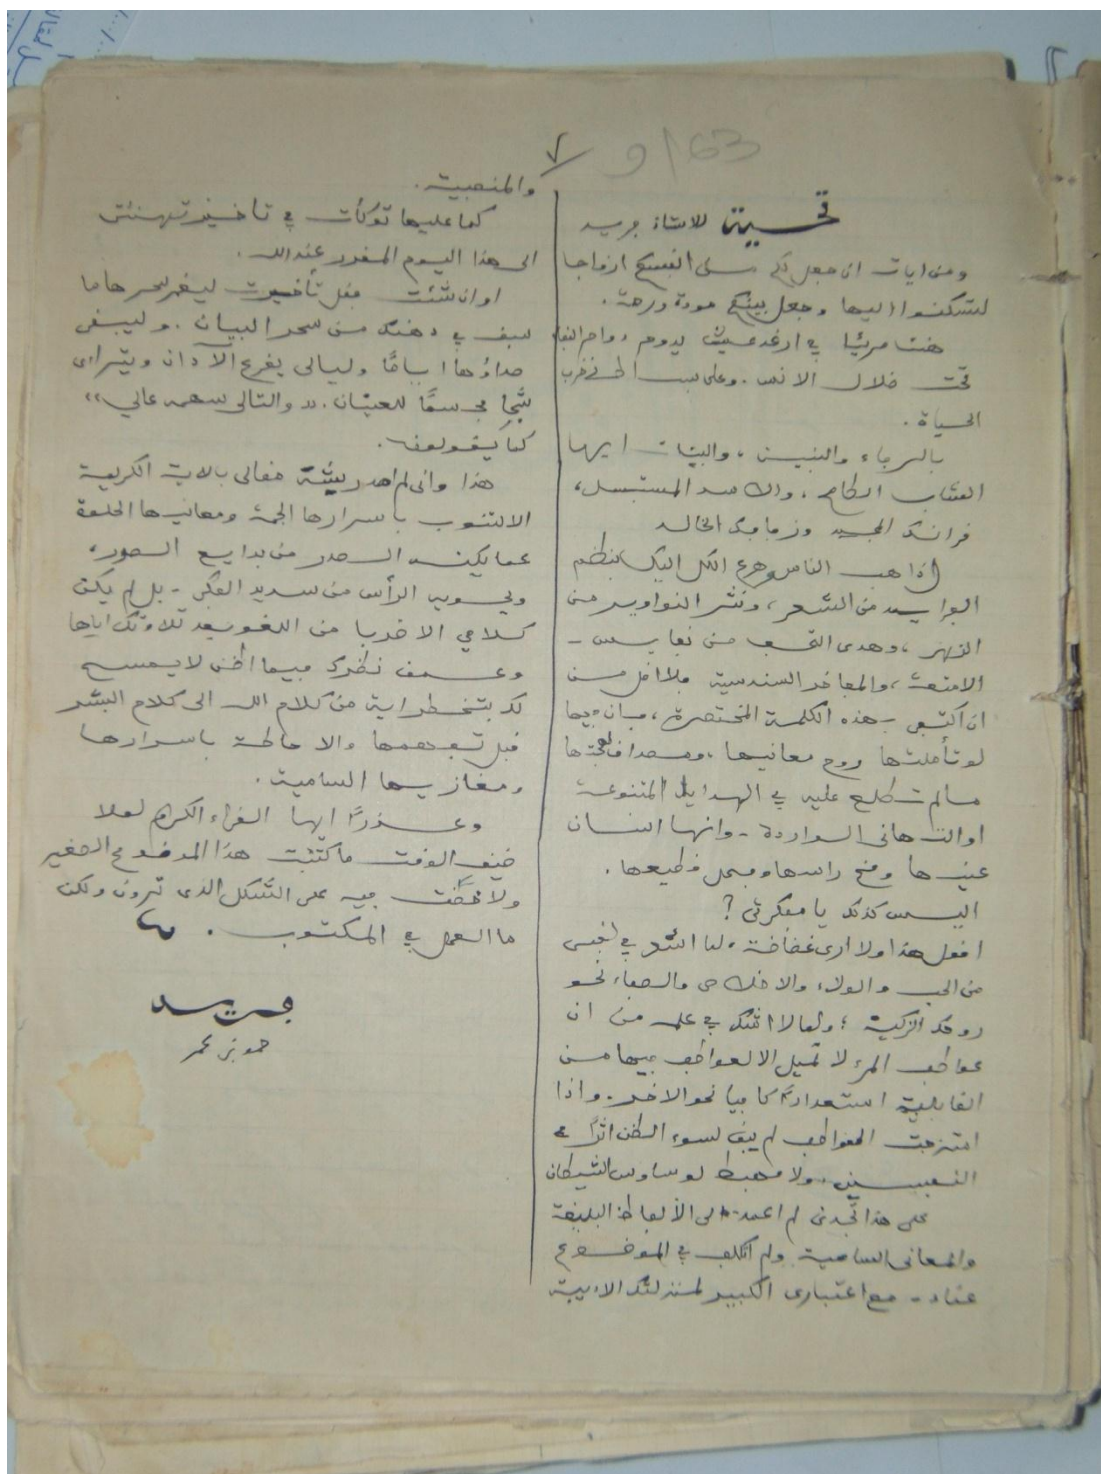 ٧
9163
تحية للاستاذ فريد
ومن ايات ان جعل لكم من انفسكم ازواجا
لتسكنوا اليها وجعل بينكم مودة ورحمة.
هنئا مريئا في ارغد عيش يدوم دواحر البقاء
تحت ظلال الانس. وعلى
الحياة.
بالرفاء والبنين، والبنات ايها
الشاب الطامح، والاسد المستبسل،
قرانك المجيد وزفافك الخالد
اذا هب الناس وهرع الكل اليك بنظم
من الشعر، ونثر النواوير من
الزهر، وهدى التحف من نفايس -
الامتعة، والمفاخر السندسية فلا اقل من
ان اكتفي بهذه الكلمة المختصرة، فبان فيها
لو تأملتها روح معانيها،
ما لم تطلع عليه في الهدايا المتنوعة
او التهانى الواردة - وانها انسان
عينها ومخ راسها وفحل قطيعها.
اليس كذلك يا مفكرتي؟
افعل هذا ولا ارى غضاضة، لما اشعر في نفسى
من الحب والولاء والاخلاص والصفاء نحو
روحك الزكية؛ ولما لا اشك في علمـ من ان
عواطف المرء لا تميل الا لعواطف فيها من
القابلية استعدادًا كافيا نحو الاخر. واذا
امتزجت العواطف لم يبق لسوء الظن اثرًا في
النفسين، ولا مهبط لوساوس الشيطان
على هذا تجدنى لم اعمد الى الألفاظ البليغة
والمعانى السامية ولم اتكلف في الموضوع
عناء - مع اعتبارى الكبير لمنزلتك الادبية
والمنصبية.
كما عليها توكأت في تأخير تهنئتى
الى هذا اليوم المقدر عند الله.
او ان شئت فقل تأخرت ليغمر سحرها ما
سبق في ذهنك من سحر البيان. وليبقى
صداؤها اياما وليالى يقرع الآذان ويتراءى
مجسمًا للعيان. "والتالى سهمه عالي"
كما يقولون.
هذا وانى لم اصدر مقالى بالاية الكريمة
الا لتنوب باسرارها الجمة ومعانيها الحلوة
عما يكنه الصدر من بدايع الصور،
ويحويه الرأس من سديد الفكر - بل لم يكن
كلامي الا ضربا من اللغو بعد تلاوتك اياها
وعمق نظرك فيما اظن لا يسمح
لك بتخطى اية من كلام الله الى كلام البشر
قبل تفهمها والاحاطة باسرارها
ومغازيها السامية.
وعذرًا ايها القراء الكرام لولا
ضيق الوقت ما كتبت هذا الموضوع الصغير
ولا فيه على الشكل الذى ترون ولكن
ما العمل في المكتوب.
فريد
حمو بن عمر